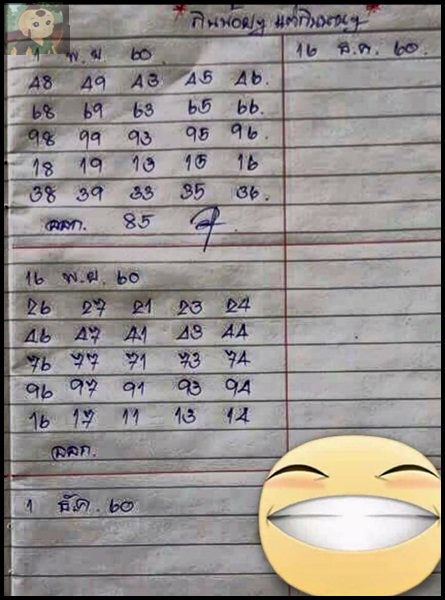 กินน้อยๆ แต่กินนานๆ
1 พ.ย 60
48 49 43 45 46.
68 69 63 65 66.
98 99 93 95 96.
18 19 13 15 16
38 39 33 35 36.
ออก. 85
16 พ.ย 60
26 27 21 23 24
46 47 41 43 44
76 77 71 73 74
96 97 91 93 94
16 17 11 13 14
ออก.
1 ธ.ค. 60
16 ธ.ค. 60.